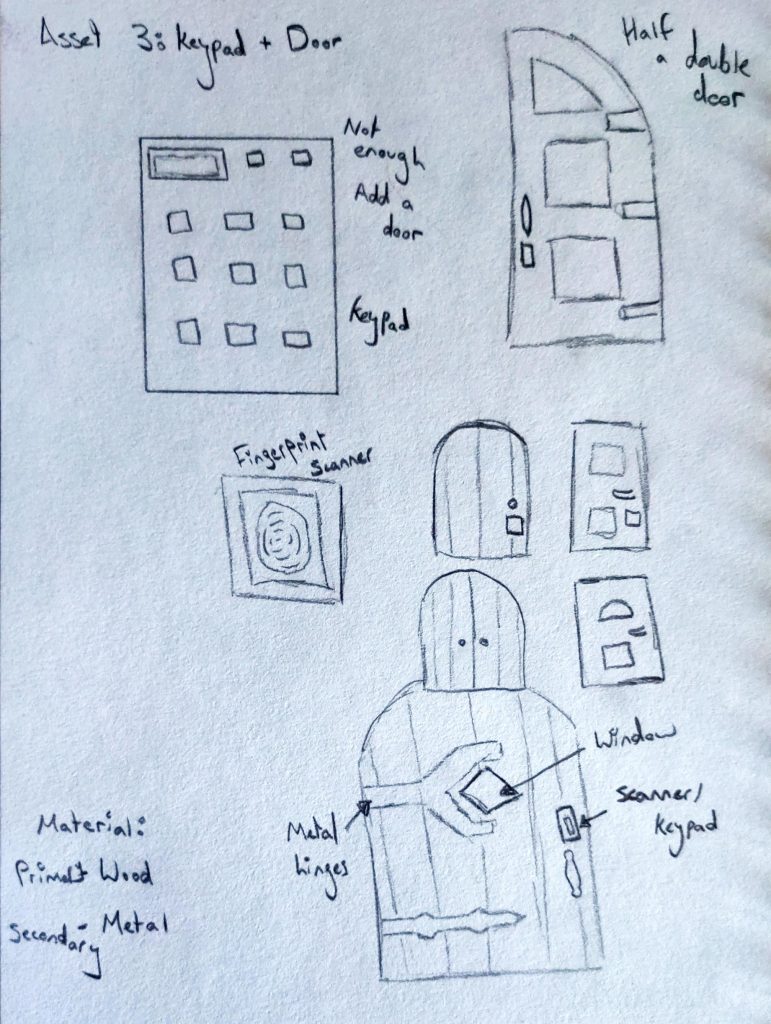 Asset 3: Keypad + Door
Half
a double
door
Not
enough
Add a
door
Keypad
Fingerprint
scanner
Window
scanner/
keypad
Metal
hinges
Material:
Wood
Secondary- Metal